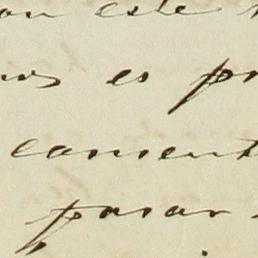 on este
nos es pr
consent
pasar